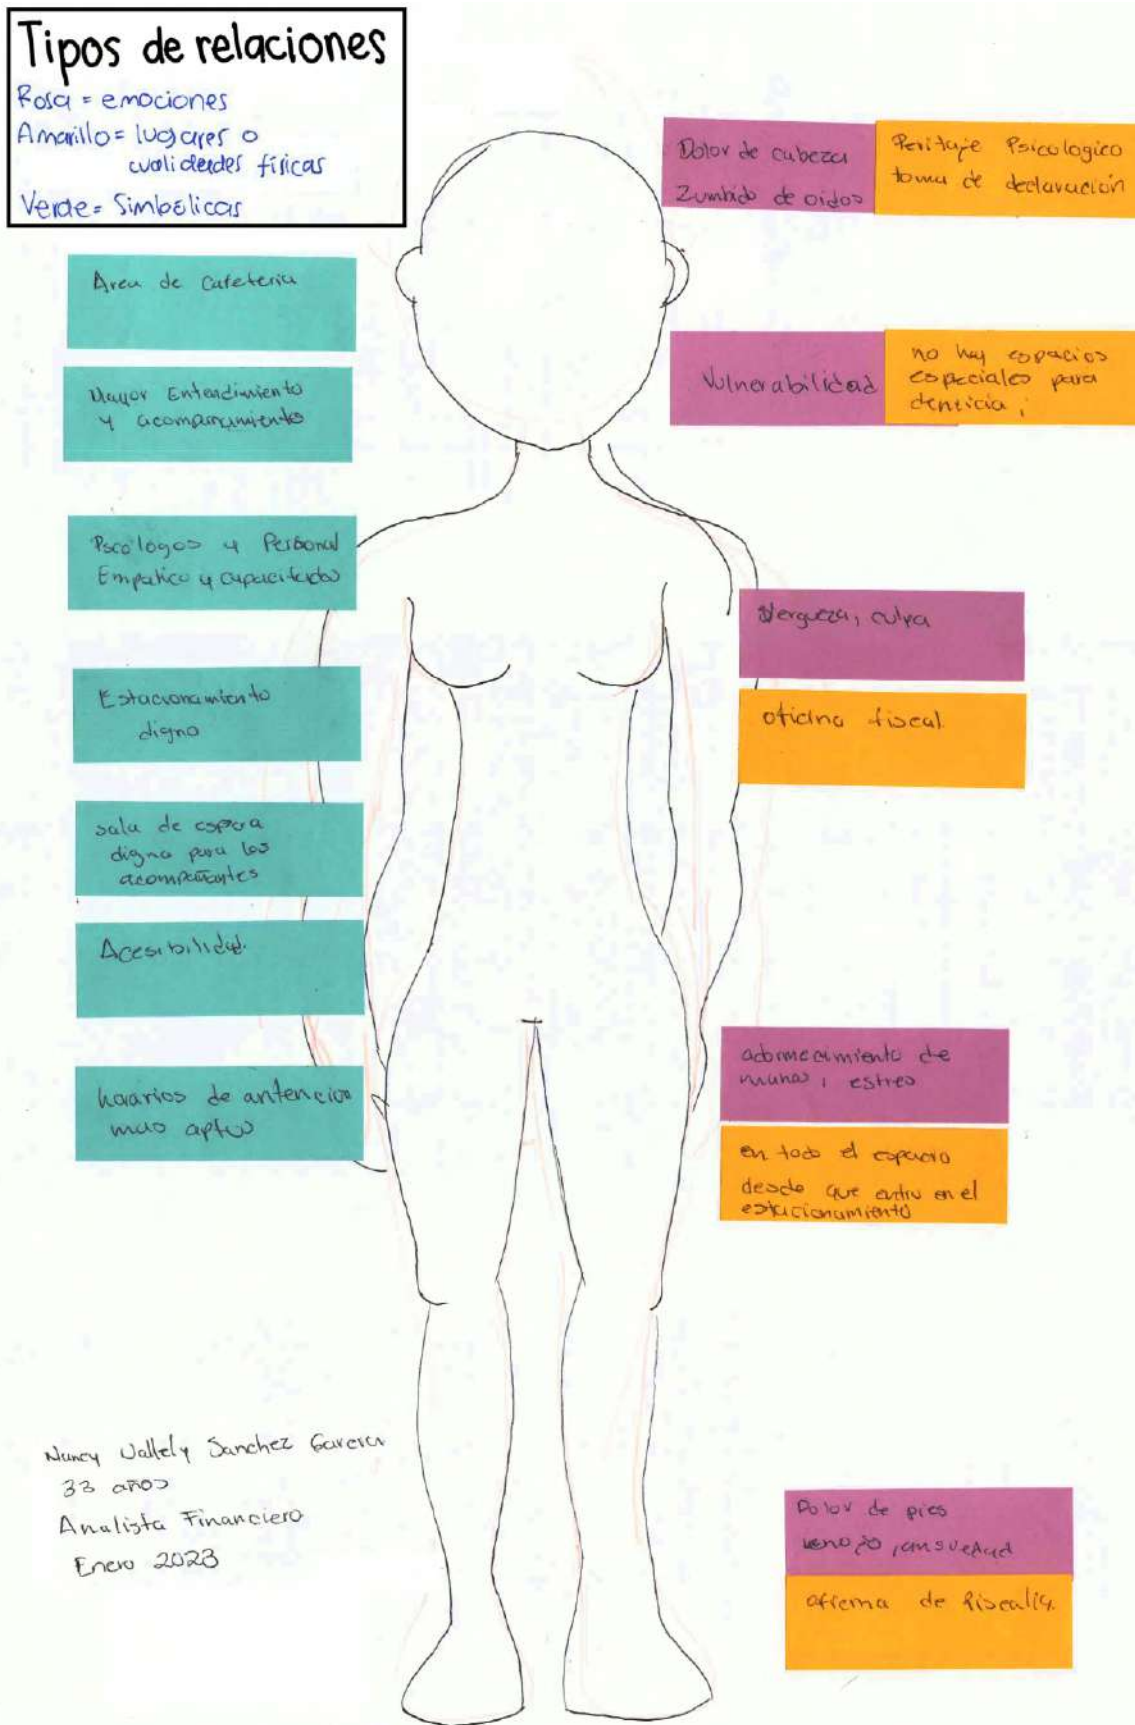 Tipos de relaciones
Rosa = emociones
Amarillo = lugares o
cualidades físicas
Verde = Simbólicas
Area de Cafeteria
Mayor Entendimiento
y acompañamiento
Pscologos y Personal
Empatico y capacitados
Estacionamiento
digno
sala de espera
digna para los
acompañantes
Acesibilidad.
horarios de antencion
mas aptos
Dolor de cabeza
Zumbido de oidos
Peritaje Psicologico
toma de declaración
Vulnerabilidad
no hay espacios
especiales para
denticia;
Vergueza, culpa
oficina fiscal.
adormecimiento de
manos, estres
en todo el espacio
desde que entru en el
estacionamiento
Dolor de pies
ansuedad
oficina de fiscalia.
Nancy Sanchez Garcia
33 años
Analista Financiero
Enero 2023